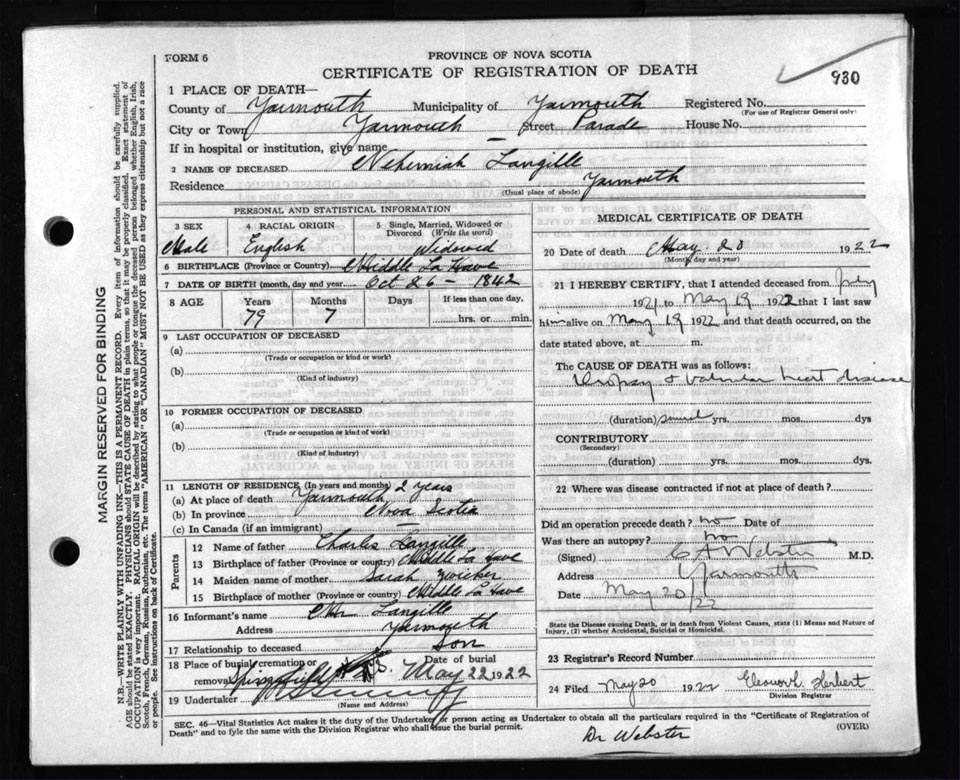 FORM 6
PROVINCE OF NOVA SCOTIA
CERTIFICATE OF REGISTRATION OF DEATH
930
1 PLACE OF DEATH—
County of Yarmouth Municipality of Yarmouth Registered No.
(For use of Registrar General only)
City or Town Yarmouth Street Parade House No.
If in hospital or institution, give name —
2 NAME OF DECEASED Nehemiah Langille
Residence Yarmouth
(Usual place of abode)
PERSONAL AND STATISTICAL INFORMATION
3 SEX 4 RACIAL ORIGIN 5 Single, Married, Widowed or Divorced (Write the word)
Male English Widowed
6 BIRTHPLACE (Province or Country) Middle La Have
7 DATE OF BIRTH (month, day and year) Oct 26 – 1842
8 AGE Years Months Days If less than one day,
79 7 hrs. or min.
9 LAST OCCUPATION OF DECEASED
(a)
(Trade or occupation or kind or work)
(b)
(Kind of industry)
10 FORMER OCCUPATION OF DECEASED
(a)
(Trade or occupation or kind of work)
(b)
(Kind of industry)
11 LENGTH OF RESIDENCE (In years and months) 2 years
(a) At place of death Yarmouth
(b) In province Nova Scotia
(c) In Canada (if an immigrant) —
Parents
12 Name of father Charles Langille
13 Birthplace of father (Province or country) Middle La Have
14 Maiden name of mother Sarah Zwicker
15 Birthplace of mother (Province or Country) Middle La Have
16 Informant's name Mr Langille
Address Yarmouth
17 Relationship to deceased Son
18 Place of burial, cremation or removal Springfield Date of burial May 22 1922
19 Undertaker
(Name and Address)
MEDICAL CERTIFICATE OF DEATH
20 Date of death May 20 1922
(Month, day and year)
21 I HEREBY CERTIFY, that I attended deceased from July
1921 to May 19 1922 that I last saw
him alive on May 19 1922 and that death occurred, on the
date stated above, at m.
The CAUSE OF DEATH was as follows:
Dropsy & Valvular heart disease
(duration) several yrs. mos. dys
CONTRIBUTORY
(Secondary)
(duration) yrs. mos. dys.
22 Where was disease contracted if not at place of death?
Did an operation precede death? no Date of
Was there an autopsy? no
(Signed) C A Webster M.D.
Address Yarmouth
Date May 20/22
State the Disease causing Death, or in death from Violent Causes, state (1) Means and Nature of
Injury, (2) whether Accidental, Suicidal or Homicidal.
23 Registrar's Record Number
24 Filed May 20 1922 Herbert
Division Registrar
SEC. 46—Vital Statistics Act makes it the duty of the Undertaker or person acting as Undertaker to obtain all the particulars required in the "Certificate of Registration of
Death" and to fyle the same with the Division Registrar who shall issue the burial permit.
(OVER)
Dr Webster
MARGIN RESERVED FOR BINDING
N.B.—WRITE PLAINLY WITH UNFADING INK—THIS IS A PERMANENT RECORD. Every item of information should be carefully supplied.
AGE should be stated EXACTLY. PHYSICIANS should STATE CAUSE OF DEATH in plain terms, so that it may be properly classified. Exact statement of
OCCUPATION is very important. RACIAL ORIGIN will be described by stating to what people or tongue the deceased person belonged whether English, Irish,
Scotch, French, German, Russian, Ruthenian, etc. The terms "AMERICAN" or "CANADIAN" MUST NOT BE USED as they express citizenship but not a race
or people. See instructions on back of Certificate.